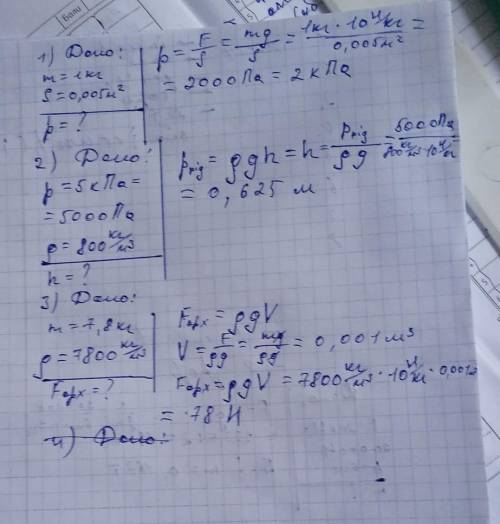 1) Дано:
m = 1 кг
S = 0,005 м²
p = ?
p = F/S = mg/S = 1кг · 10 Н/кг / 0,005 м² =
= 2000 Па = 2 кПа
2) Дано:
p = 5 кПа =
= 5000 Па
ρ = 800 кг/м3
h = ?
pрід = ρgh = h = pрід/ρg = 5000 Па / 800 кг/м3 · 10 Н/кг
= 0,625 м
3) Дано:
m = 7,8 кг
ρ = 7800 кг/м3
Fарх = ?
Fарх = ρgV
V = F/ρg = mg/ρg = 0,001 м3
Fарх = ρgV = 7800 кг/м3 · 10 Н/кг · 0,001
= 78 Н
4) Дано: